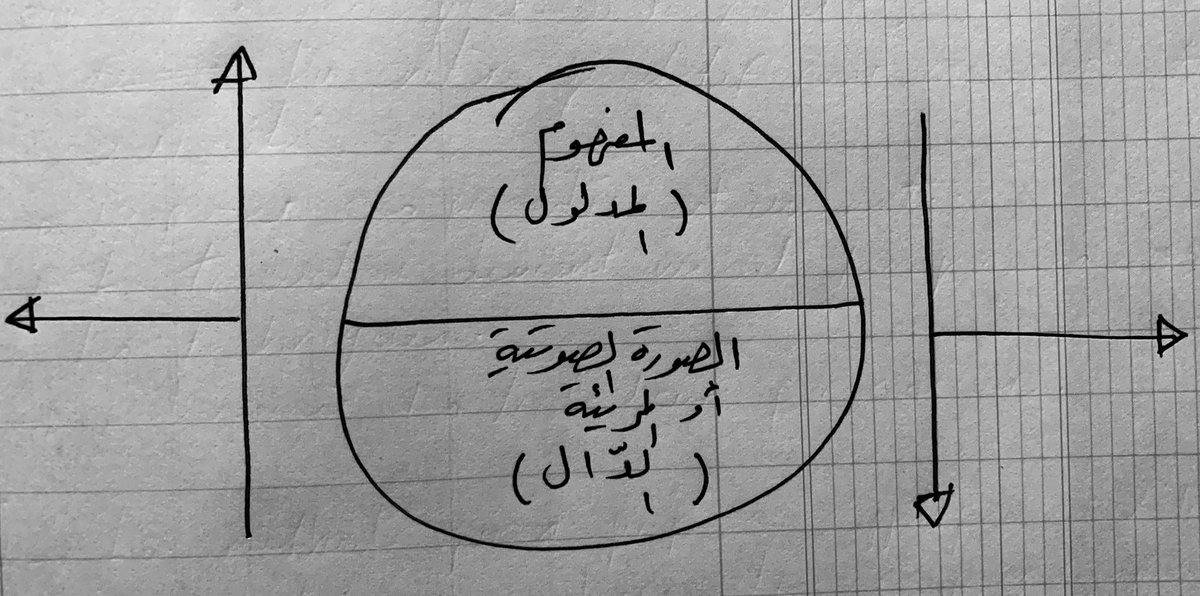 المفهوم
(المدلول)
الصورة الصوتية
أو المرئية
(الدّال)